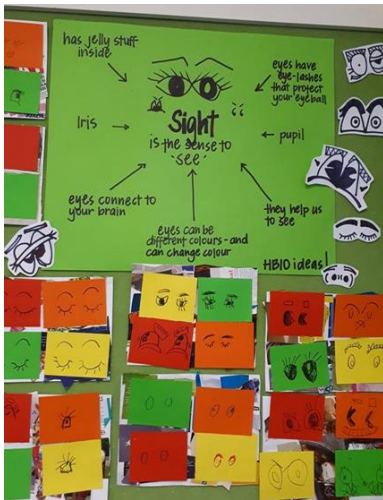 has jelly stuff
inside
eyes have
eye-lashes
that protect
your eyeball
Iris
Sight
is the sense to
'see'
pupil
eyes connect to
your brain
eyes can be
different colours - and
can change colour
they help us
to see
HB10 ideas!